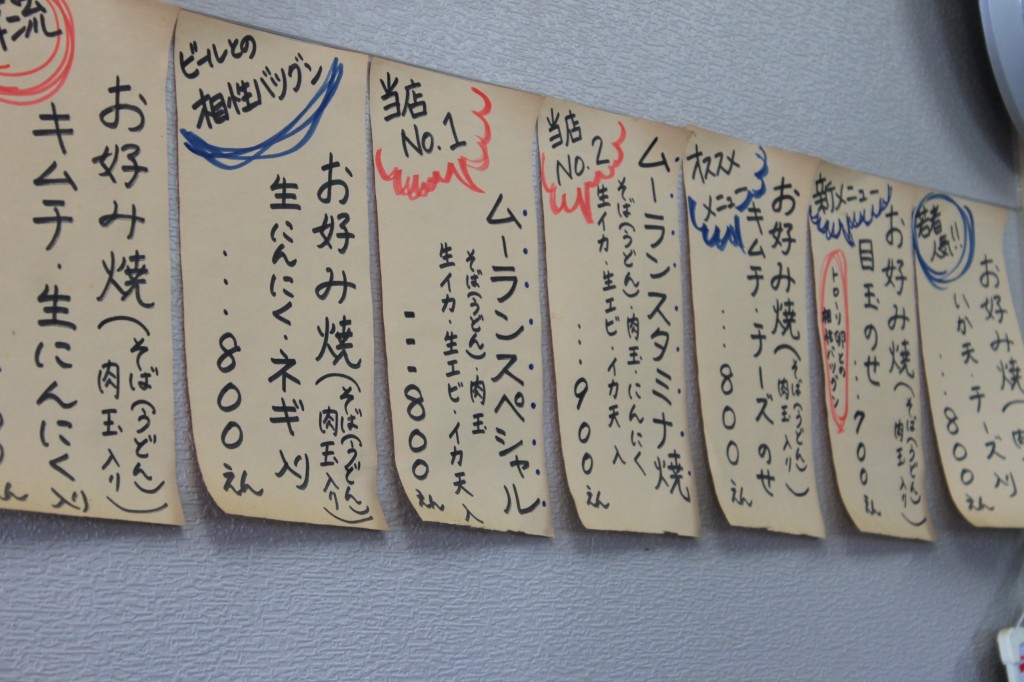 流
お好み焼(そば(うどん)
肉玉入り)
キムチ・生にんにく入り
ビールとの
相性バツグン
お好み焼(そば(うどん)
肉玉入り)
生にんにく・ネギ入り
...800えん
当店
No.1
ムーランスペシャル
そば(うどん)・肉玉
生イカ・生エビ・イカ天入
...800えん
当店
No.2
ムーランスタミナ焼
そば(うどん)・肉玉・にんにく
生イカ・生エビ・イカ天入
...900えん
オススメ
メニュー
お好み焼(そば(うどん)
肉玉入り)
キムチ・チーズのせ
...800えん
新メニュー
お好み焼(そば(うどん)
肉玉入り)
目玉のせ
トローリ卵との
相性バツグン
...700えん
若者
人気!!
お好み焼(
肉
いか天・チーズ入り
...800えん